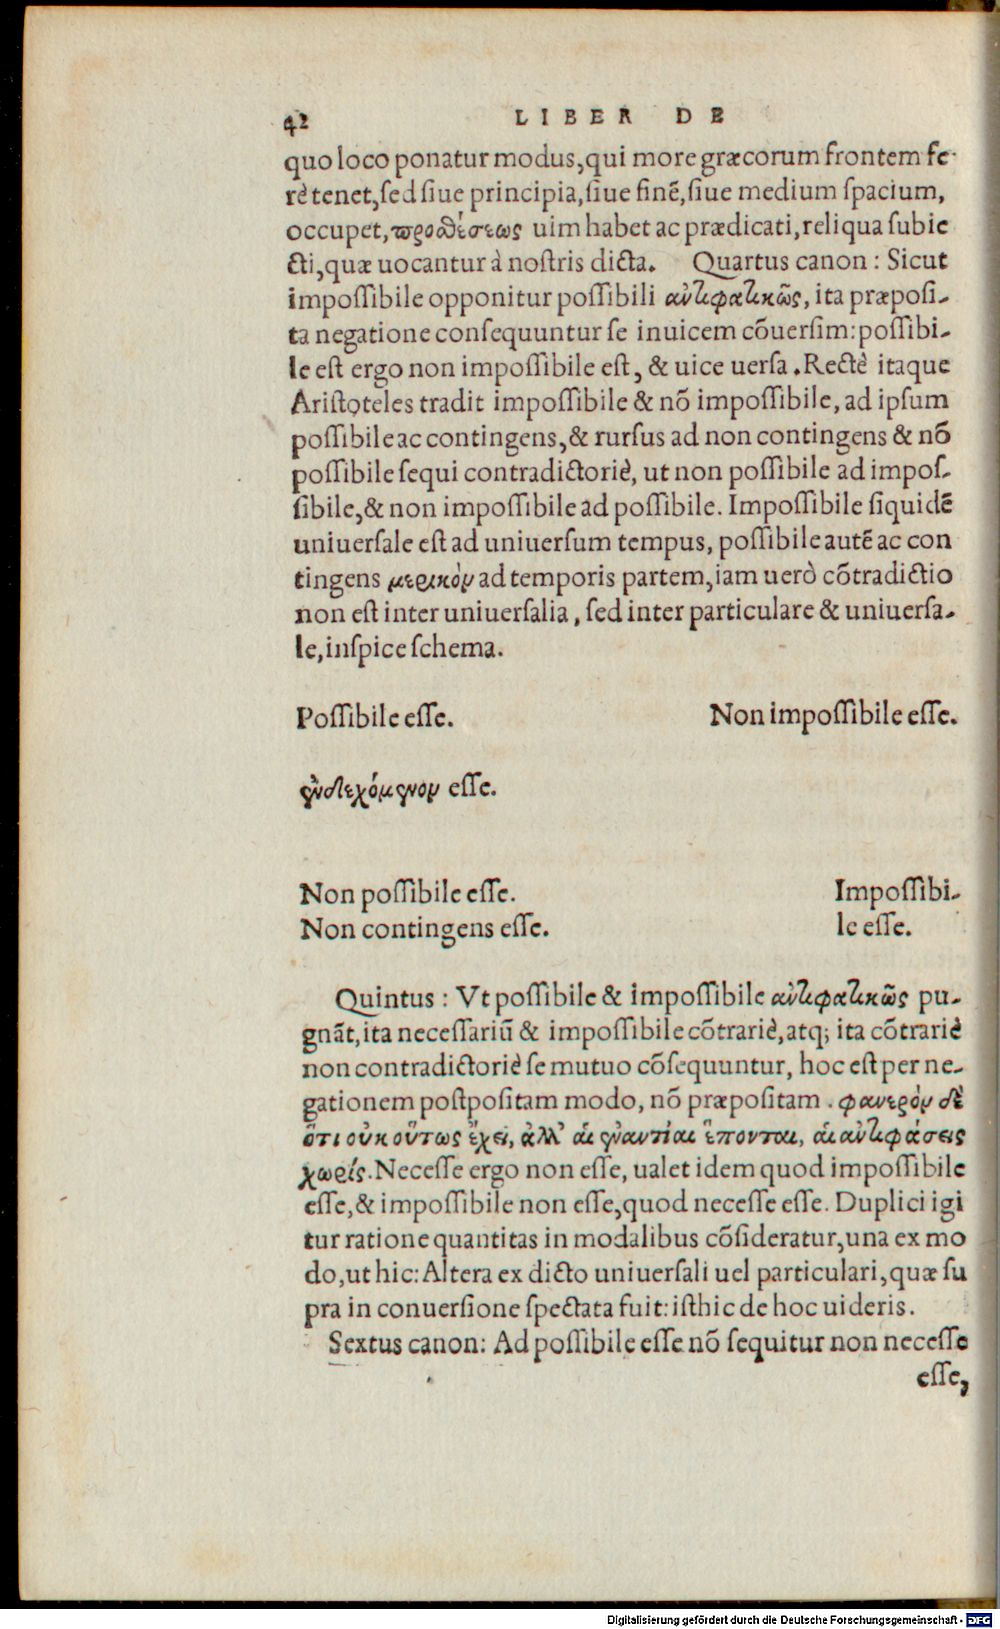 42 LIBER DE
quo loco ponatur modus, qui more græcorum frontem fe-
rè tenet, sed siue principia, siue finẽ, siue medium spacium,
occupet, προθέσεως uim habet ac prædicati, reliqua subie
cti, quæ uocantur à nostris dicta. Quartus canon: Sicut
impossibile opponitur possibili ἀντιφατικῶς, ita præposi-
ta negatione consequuntur se inuicem cõuersim: possibi-
le est ergo non impossibile est, & uice uersa. Rectè itaque
Aristoteles tradit impossibile & nõ impossibile, ad ipsum
possibile ac contingens, & rursus ad non contingens & nõ
possibile sequi contradictoriè, ut non possibile ad impos-
sibile, & non impossibile ad possibile. Impossibile siquidẽ
uniuersale est ad uniuersum tempus, possibile autẽ ac con
tingens μερικὸν ad temporis partem, iam uerò cõtradictio
non est inter uniuersalia, sed inter particulare & uniuersa-
le, inspice schema.
Possibile esse. Non impossibile esse.
ἐνδεχόμενον esse.
Non possibile esse. Impossibi-
Non contingens esse. le esse.
Quintus: Vt possibile & impossibile ἀντιφατικῶς pu-
gnãt, ita necessariũ & impossibile cõtrariè, atq; ita cõtrariè
non contradictoriè se mutuo cõsequuntur, hoc est per ne-
gationem postpositam modo, nõ præpositam. φανερὸν δὲ
ὅτι οὐκ οὕτως ἔχει, ἀλλ' αἱ ἐναντίαι ἕπονται, αἱ ἀντιφάσεις
χωρίς. Necesse ergo non esse, ualet idem quod impossibile
esse, & impossibile non esse, quod necesse esse. Duplici igi
tur ratione quantitas in modalibus cõsideratur, una ex mo
do, ut hic: Altera ex dicto uniuersali uel particulari, quæ su
pra in conuersione spectata fuit: isthic de hoc uideris.
Sextus canon: Ad possibile esse nõ sequitur non necesse
esse,
Digitalisierung gefördert durch die Deutsche Forschungsgemeinschaft - DFG